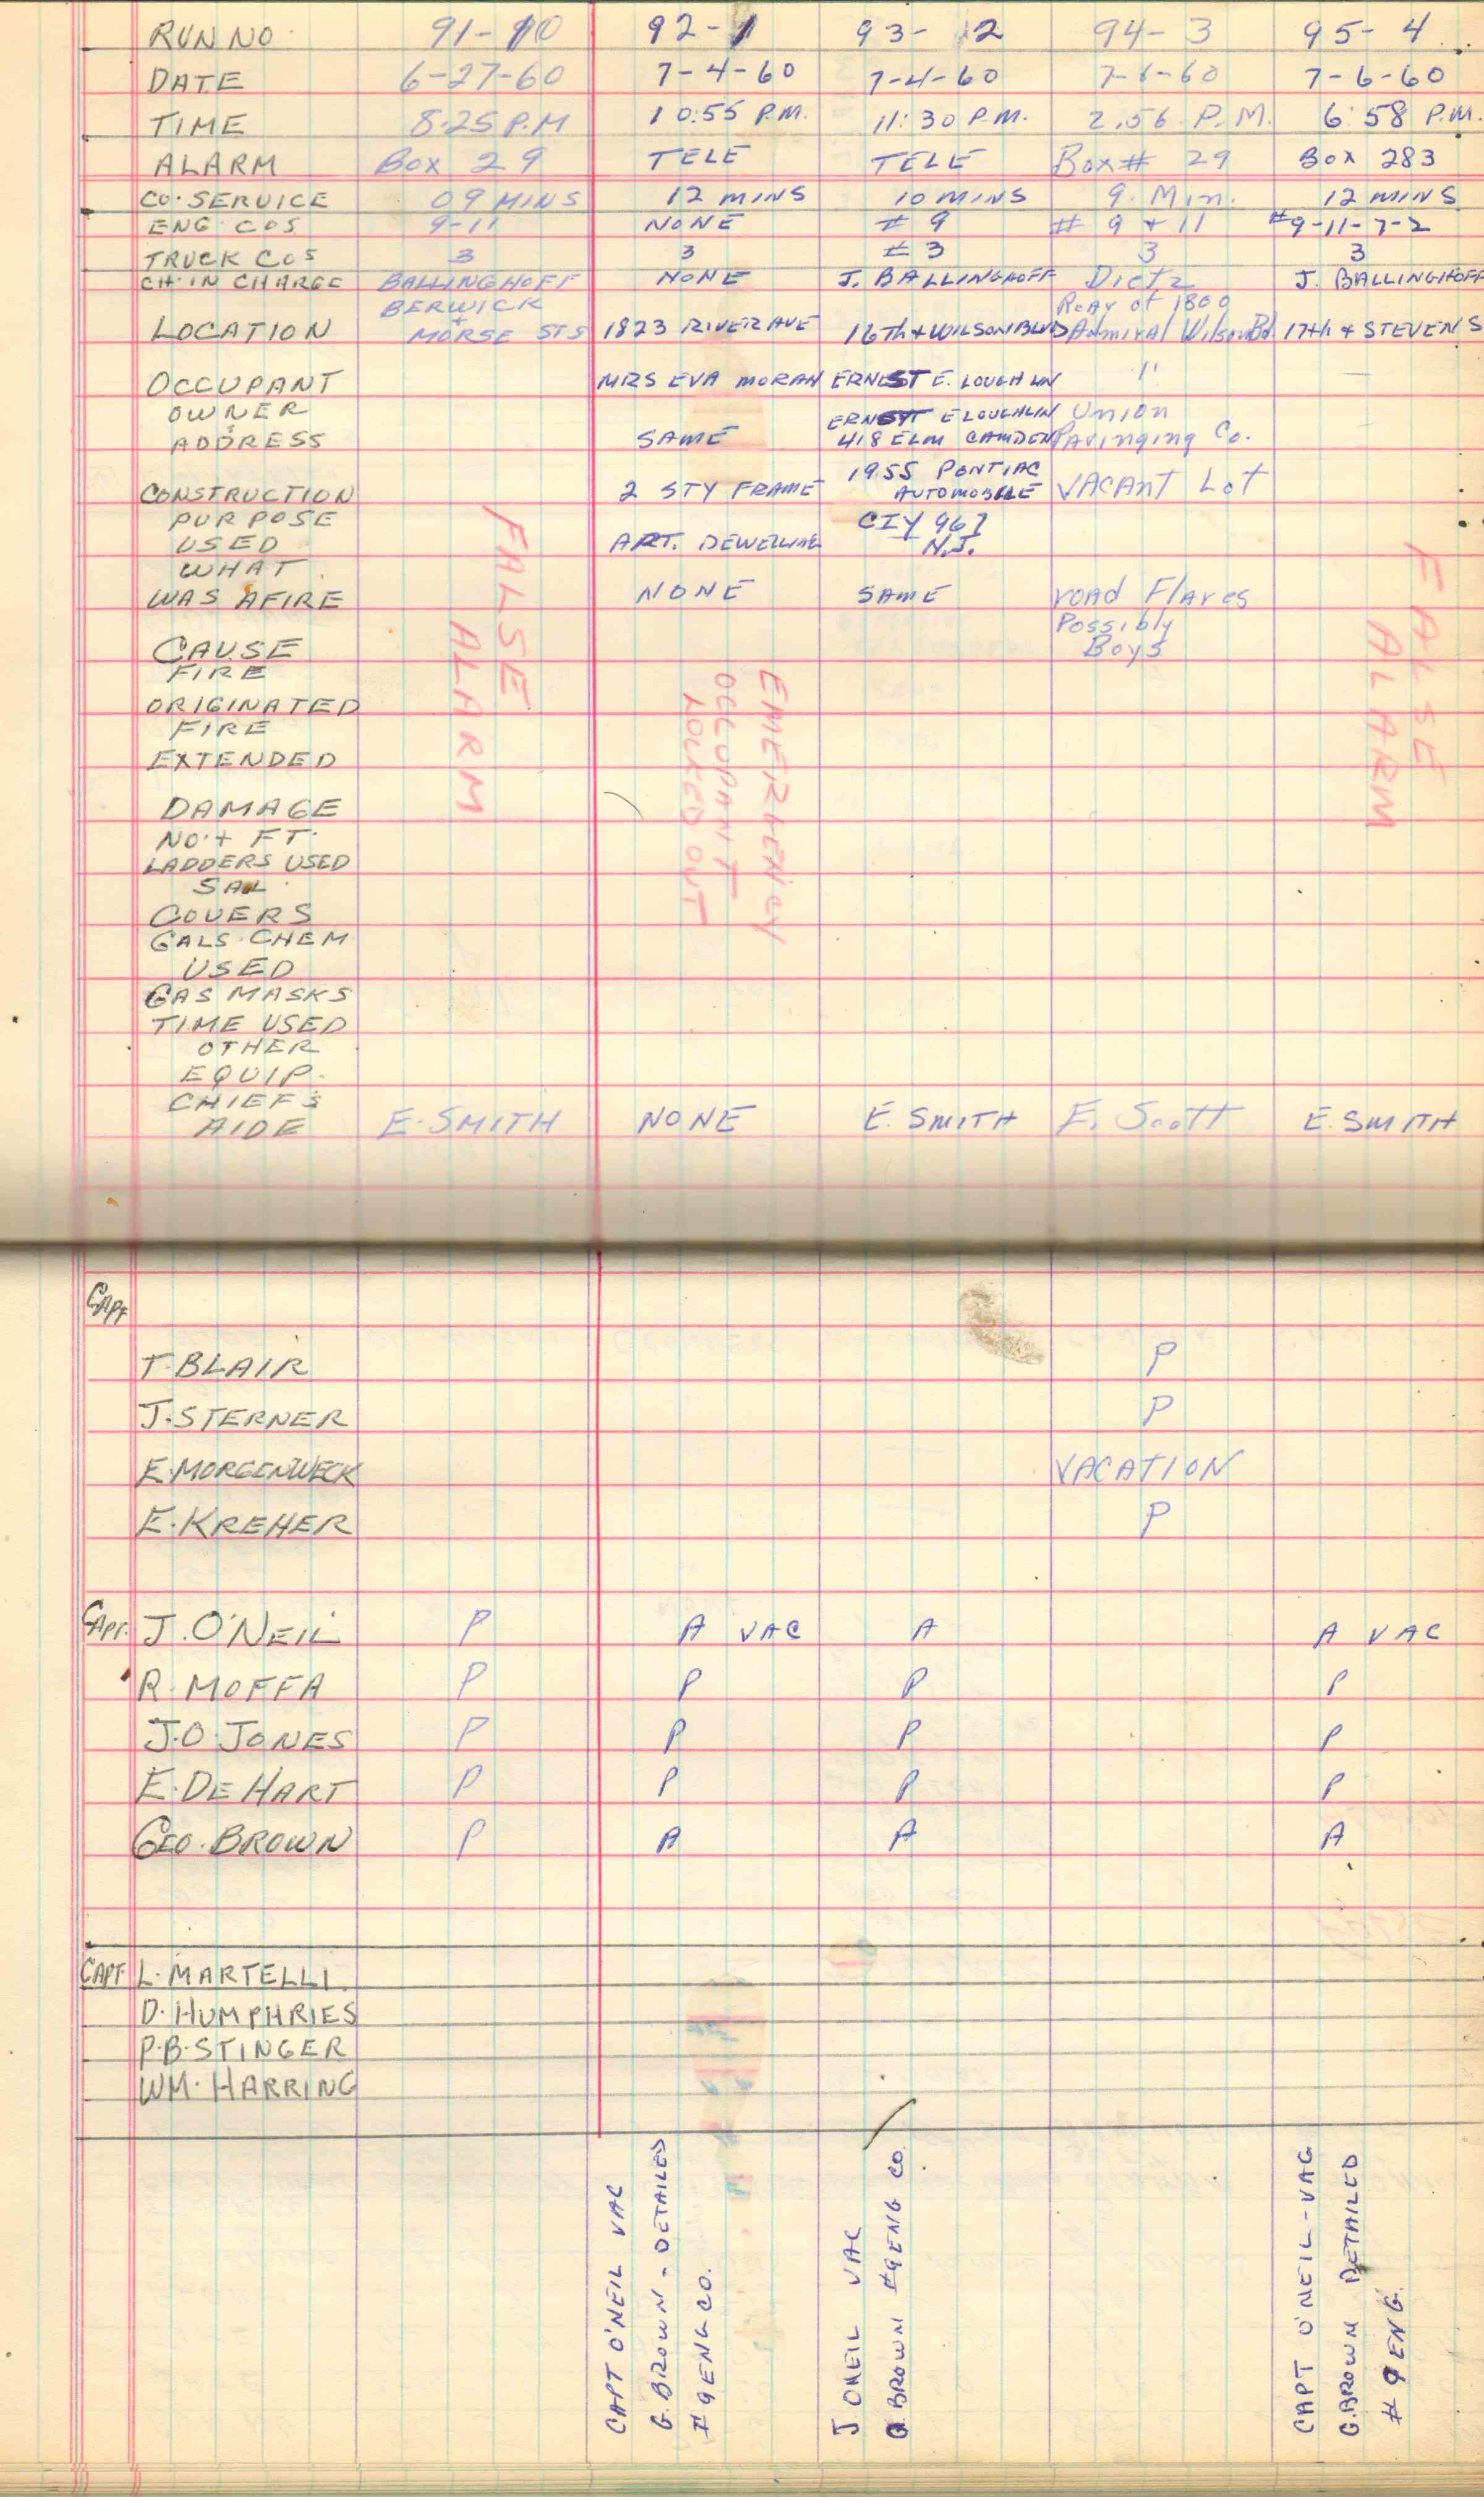 RUN NO. 91-10 92-1 93-12 94-3 95-4
DATE 6-27-60 7-4-60 7-4-60 7-6-60 7-6-60
TIME 8:25 P.M 10:55 P.M. 11:30 P.M. 2.56 P.M. 6:58 P.M.
ALARM Box 29 TELE TELE Box# 29 BOX 283
CO. SERVICE 09 MINS 12 MINS 10 MINS 9. Min. 12 MINS
ENG COS 9-11 NONE # 9 # 9 + 11 #9-11-7-2
TRUCK COS 3 3 #3 3 3
CH. IN CHARGE BALLINGHOFF NONE J. BALLINGHOFF Dietz J. BALLINGHOFF
BERWICK Rear of 1800
LOCATION + MORSE STS 1823 RIVER AVE 16Th + WILSON BLVD Admiral Wilson Bd 17th + STEVENS
OCCUPANT MRS EVA MORAN ERNEST E. LOUGHLIN " —
OWNER ERNEST E LOUGHLIN Union
ADDRESS SAME 418 ELM CAMDEN Pavinging Co. —
CONSTRUCTION 2 STY FRAME 1955 PONTIAC AUTOMOBILE VACANT Lot
PURPOSE CIY 967
USED ART. DEWELLING N.J.
WHAT
WAS AFIRE NONE SAME road Flares
Possibly
CAUSE Boys
FIRE
ORIGINATED
FIRE
EXTENDED
DAMAGE
NO. + FT.
LADDERS USED
SAL.
COVERS
GALS. CHEM
USED
GAS MASKS
TIME USED
OTHER
EQUIP.
CHIEFS
AIDE E. SMITH NONE E. SMITH E. Scott E. SMITH
FALSE
ALARM
EMERGENCY
OCCUPANT
LOCKED OUT
FALSE
ALARM
CAPT
T. BLAIR P
J. STERNER P
E. MORGENWECK VACATION
E. KREHER P
CAPT. J. O'NEIL P A VAC A A VAC
R. MOFFA P P P P
J.O. JONES P P P P
E. DE HART P P P P
GEO. BROWN P A A A
CAPT. L. MARTELLI
D. HUMPHRIES
P.B. STINGER
WM. HARRING
CAPT O'NEIL VAC
G. BROWN - DETAILED
#9 ENG CO.
J. ONEIL VAC
G. BROWN #9 ENG CO.
CAPT O'NEIL - VAC
G. BROWN DETAILED
# 9 ENG.